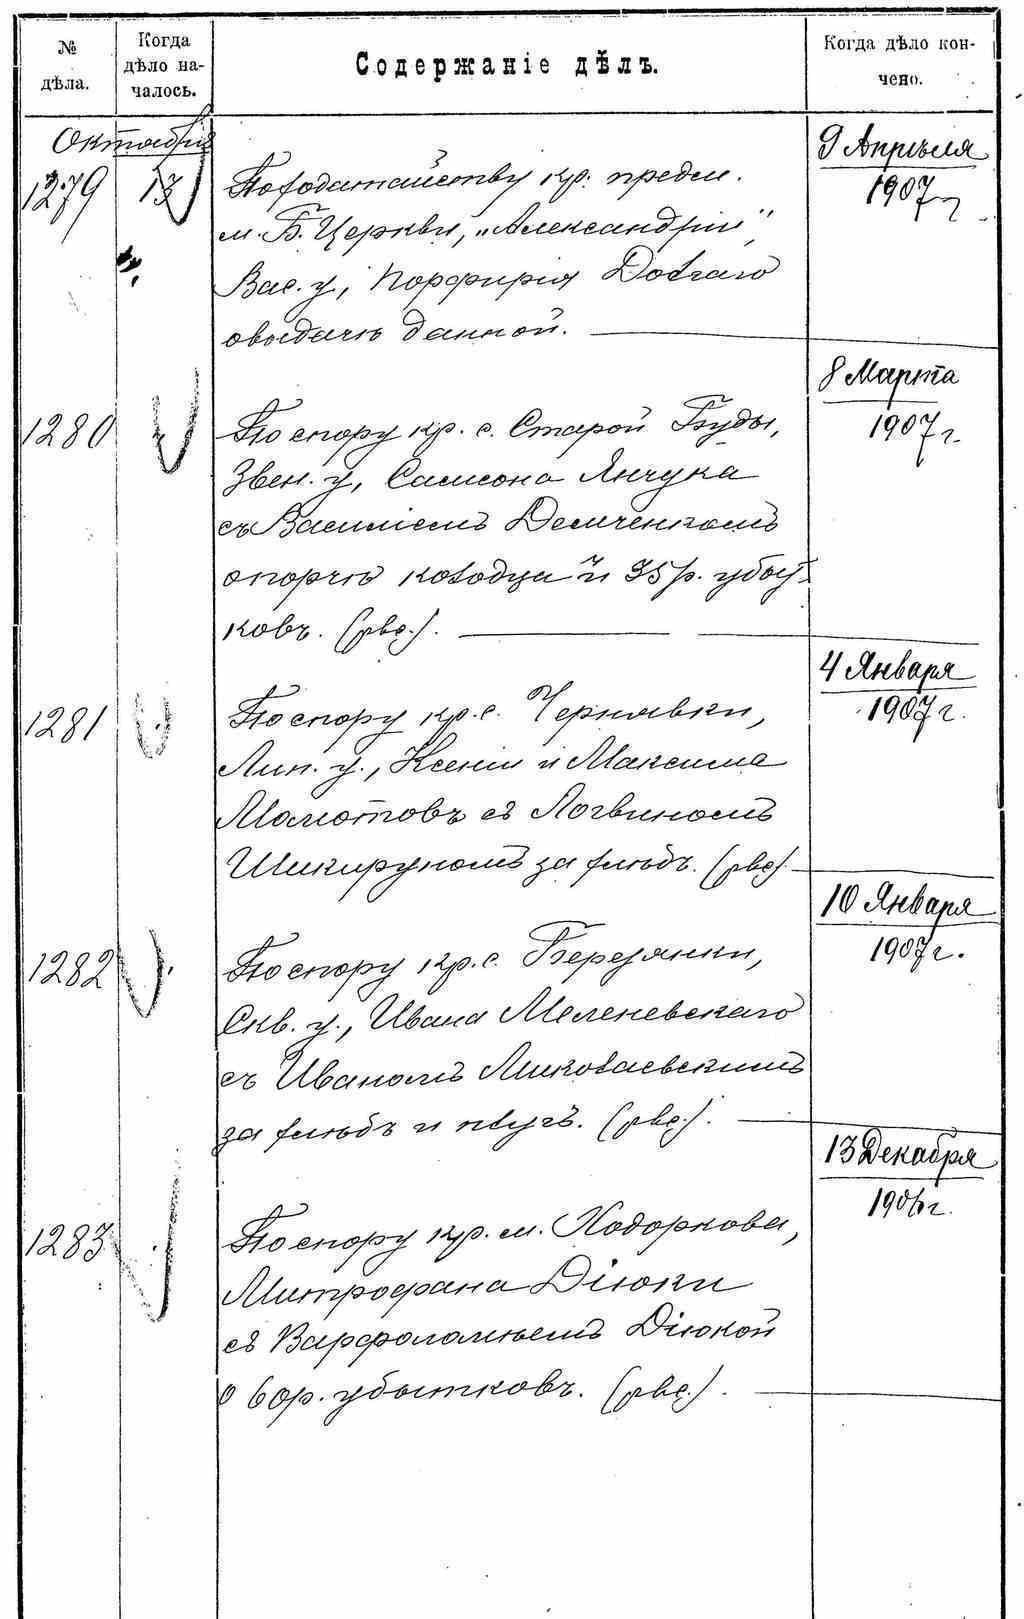 № дѣла.
Когда дѣло на-
чалось.
Содержаніе дѣлъ.
Когда дѣло кон-
чено.
Октября
1279 13 По ходатайству кр. предм. 9 Апрѣля
м. Б. Церкви, „Александріи", 1907 г.
Вас. у, Порфирія Довгаго
о выдачѣ данной.
1280 По спору кр. с. Старой Буды, 8 Марта
Звен. у, Самсона Янчука 1907 г.
съ Василіемъ Демченкомъ
о порчѣ колодца и 35 р. убыт-
ковъ. (рвс.).
1281 По спору кр. с. Чернявки, 4 Января
Лип. у., Ксеніи и Максима 1907 г.
Мамотовъ съ Логвиномъ
Шикируномъ за хлѣбъ. (рвс).
1282 По спору кр. с. Березянки, 10 Января
Скв. у., Ивана Меленевскаго 1907 г.
съ Иваномъ Миколаевскимъ
за хлѣбъ и плугъ. (рвс.).
1283 По спору кр. м. Ходоркова, 13 Декабря
Митрофана Діюки 1906 г.
съ Варфоломѣемъ Діюкой
о 60 р. убытковъ. (рвс.).